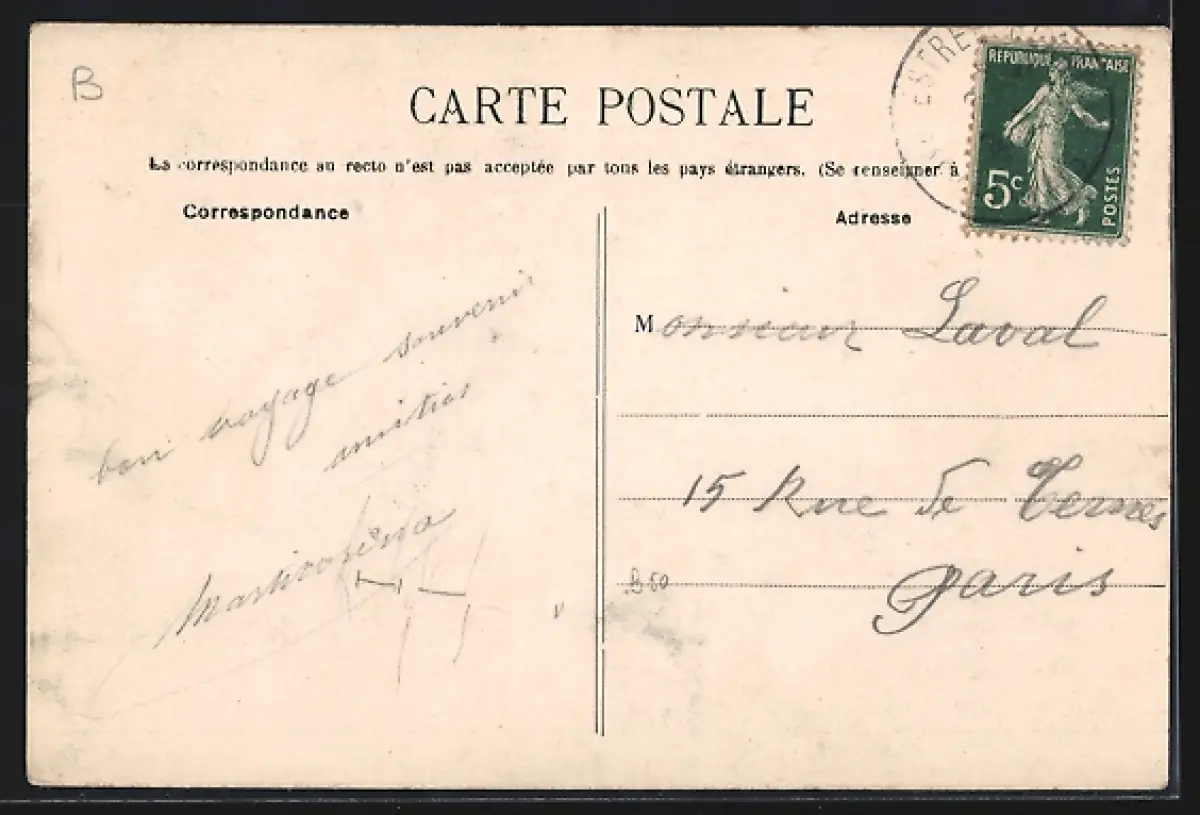 B
CARTE POSTALE
La correspondance au recto n'est pas acceptée par tous les pays étrangers. (Se renseigner à
Correspondance
bon voyage souvenir
amitiés
Adresse
REPUBLIQUE FRANÇAISE
5c
POSTES
ESTRE
Monsieur Laval
15 Rue de Ternes
Paris
B 50